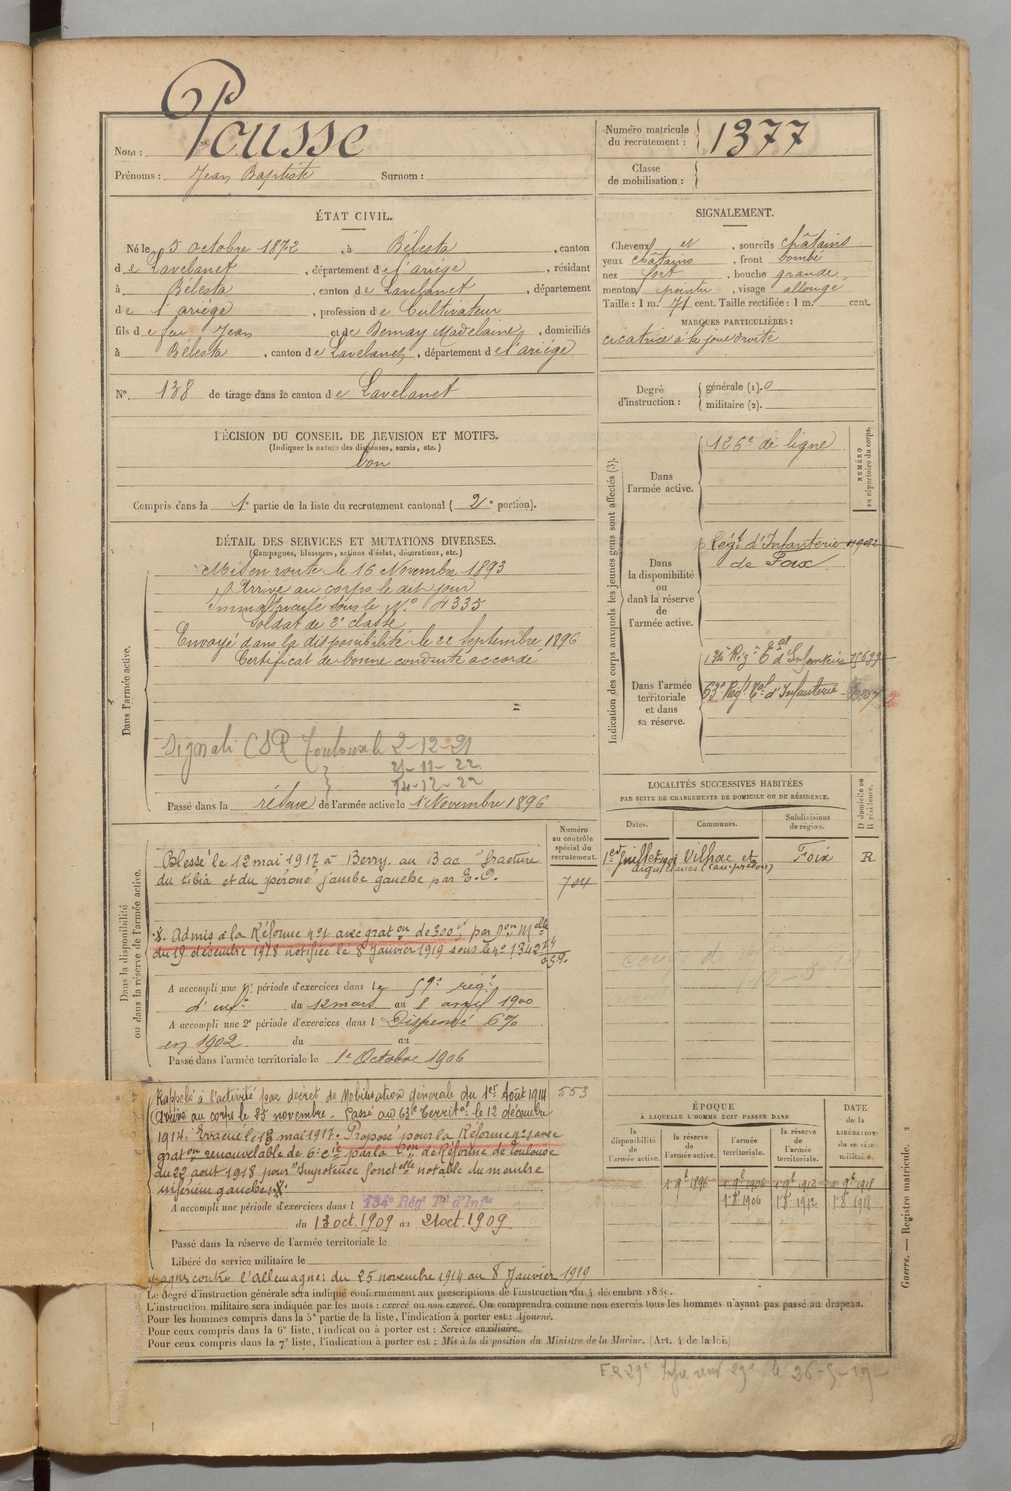 Nom : Pousse
Prénoms : Jean Baptiste Surnom :
Numéro matricule
du recrutement : 1377
Classe
de mobilisation :
ÉTAT CIVIL.
Né le 5 octobre 1872, à Bélesta, canton
de Lavelanet, département de l'ariége, résidant
à Bélesta, canton de Lavelanet, département
de l'ariége, profession de Cultivateur
fils de feu Jean et de Demay Madelaine, domiciliés
à Bélesta, canton de Lavelanet, département de l'ariége
N° 138 de tirage dans le canton de Lavelanet
SIGNALEMENT.
Cheveux et, sourcils châtains
yeux châtains, front bombé
nez fort, bouche grande,
menton pointu, visage allongé
Taille : 1 m. 71 cent. Taille rectifiée : 1 m. cent.
MARQUES PARTICULIÈRES :
cicatrice à la joue droite
Degré
d'instruction :
générale (1). 0
militaire (2).
DÉCISION DU CONSEIL DE REVISION ET MOTIFS.
(Indiquer la nature des dispenses, sursis, etc.)
bon
Compris dans la 1e partie de la liste du recrutement cantonal ( 2e portion).
DÉTAIL DES SERVICES ET MUTATIONS DIVERSES.
(Campagnes, blessures, actions d'éclat, décorations, etc.)
Dans l'armée active.
Mis en route le 16 Novembre 1893
Arrivé au corps le dit jour
Immatriculé sous le N° 4335
Soldat de 2e classe
Envoyé dans la disponibilité le 22 Septembre 1896
Certificat de bonne conduite accordé
Signali CSR Toulouse le 2-12-21
21-11-22
14-12-22
Passé dans la réserve de l'armée active le 1 Novembre 1896
Indication des corps auxquels les jeunes gens sont affectés (3).
NUMÉRO
au répertoire du corps.
Dans
l'armée active.
126e de ligne
Dans
la disponibilité
ou
dans la réserve
de
l'armée active.
Régt d'Infanterie
de Foix
Dans l'armée
territoriale
et dans
sa réserve.
134e Régt Tal d'Infanterie
63e Régt Tal d'Infanterie
LOCALITÉS SUCCESSIVES HABITÉES
PAR SUITE DE CHANGEMENTS DE DOMICILE OU DE RÉSIDENCE.
D domicile ou
R résidence.
Dates. Communes. Subdivisions
de région.
Vilhac et Foix R
aiguillanes
Dans la disponibilité
ou dans la réserve de l'armée active.
Numéro
au contrôle
spécial du
recrutement.
704
Blessé le 12 mai 1917 à Berry au Bac fracture
du tibia et du péroné jambe gauche par E.O.
X. Admis à la Réforme n°1 avec graton de 300f par Don Melle
du 19 décembre 1918 notifiée le 8 Janvier 1919 sous le n° 1342
A accompli une 1e période d'exercices dans le 59e régt
d'infie du 12 mars au 8 avril 1900
A accompli une 2e période d'exercices dans l Dispensé 6%
en 1902 du au
Passé dans l'armée territoriale le 1er Octobre 1906
553
Rappelé à l'activité par décret de Mobilisation générale du 1er Août 1914
Arrivé au corps le 25 novembre. Passé au 63e Territal le 12 décembre
1914. Evacué le 18 mai 1917. Proposé pour la Réforme n°1 avec
graton renouvelable de 6e cie par la Con de Réforme de Toulouse
du 22 août 1918 pour Impotence fonctelle notable du membre
inférieur gauche. X
A accompli une période d'exercices dans l 134e Régt Tal d'Infie
du 13 oct. 1909 au 21 oct. 1909
Passé dans la réserve de l'armée territoriale le
Libéré du service militaire le
pagne contre l'Allemagne : du 25 novembre 1914 au 8 Janvier 1919
ÉPOQUE
À LAQUELLE L'HOMME DOIT PASSER DANS
DATE
de la
LIBÉRATION
du service
militaire.
la
disponibilité
de
l'armée active.
la réserve
de
l'armée active.
l'armée
territoriale.
la réserve
de
l'armée
territoriale.
1 9bre 1896 1 9bre 1906 1 9bre 1912 1 9bre 1918
1 8 1906 1 8 1912 1 8 1918
Le degré d'instruction générale sera indiqué conformément aux prescriptions de l'instruction du 4 décembre 188
L'instruction militaire sera indiquée par les mots : exercé ou non exercé. On comprendra comme non exercés tous les hommes n'ayant pas passé au drapeau.
Pour les hommes compris dans la 5e partie de la liste, l'indication à porter est : Ajourné.
Pour ceux compris dans la 6e liste, l'indication à porter est : Service auxiliaire.
Pour ceux compris dans la 7e liste, l'indication à porter est : Mis à la disposition du Ministre de la Marine. (Art. 4 de la loi.)
Guerre. — Registre matricule.